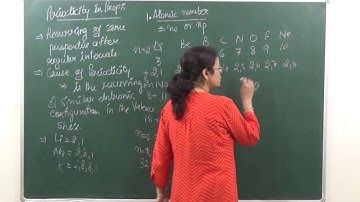 Periodicity in Props.
→ Recurring of same
properties after
regular intervals
→ Cause of Periodicity
→ is the recurring
of similar electronic
configuration in the Valence
shell.
→ Li = 2,1
Na = 2,8,1
K = 2,8,8,1
1. Atomic number
= ne or np
n=2 Li Be B C N O F Ne
3 6 7 8 9 10
2,1 2,5 2,6 2,7 2,8
32